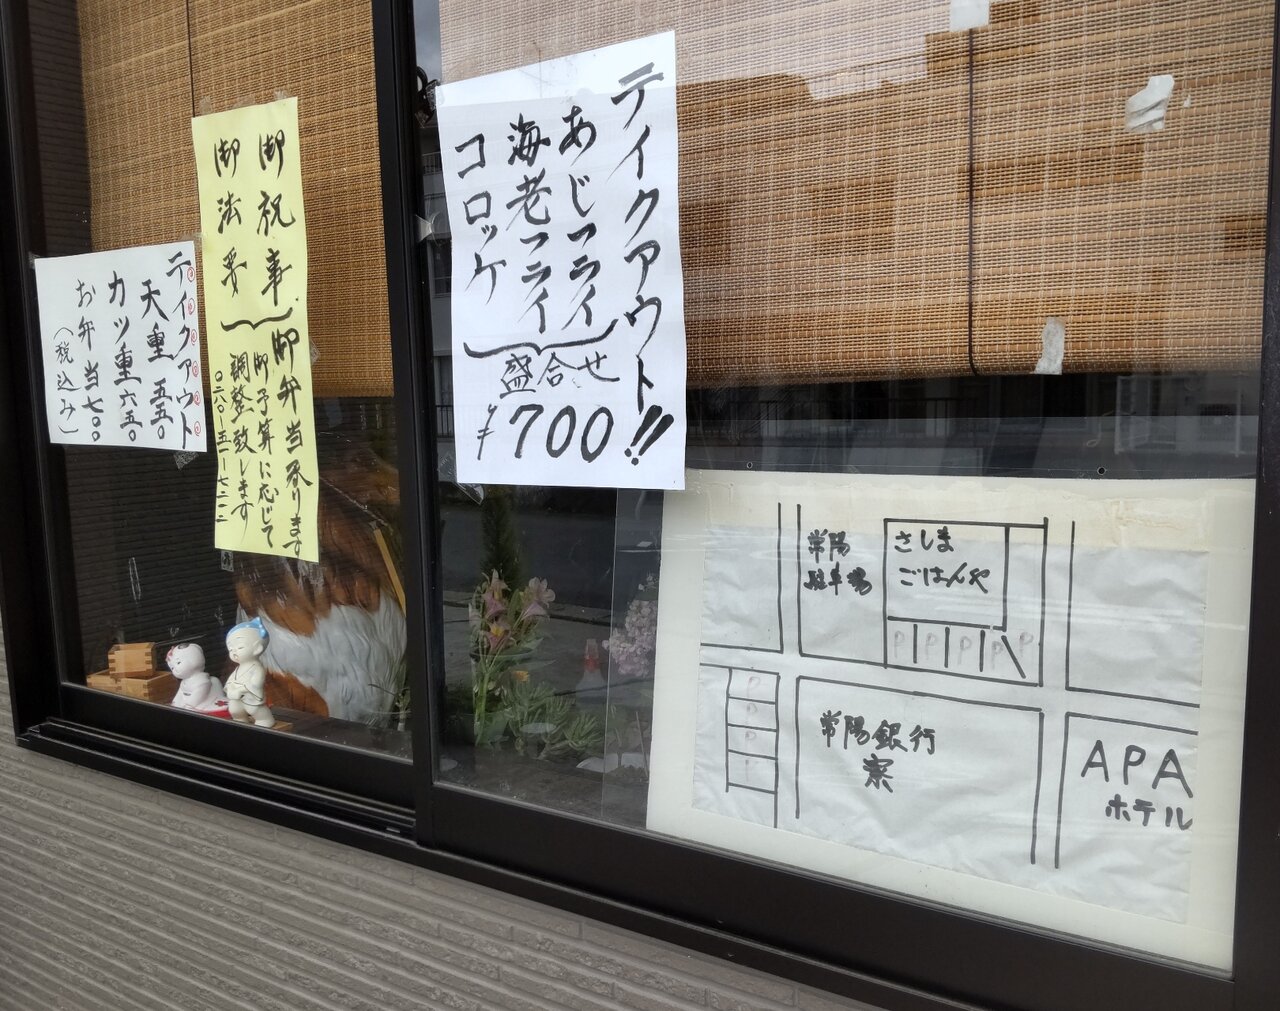 テイクアウト
天重 五五〇
カツ重 六五〇
お弁当 七〇〇
(税込み)
御祝事
御法要
御弁当承ります
御予算に応じて
調整致します
テイクアウト!!
あじフライ
海老フライ
コロッケ
盛合せ
¥700
常陽
駐車場
さしま
ごはんや
P P P P P
P
P
P
常陽銀行
寮
APA
ホテル